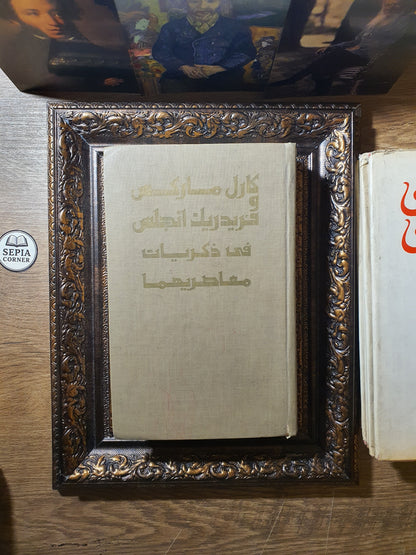 كارل ماركس
و
فريدريك انجلس
في ذكريات
معاصريهما
SEPIA
CORNER